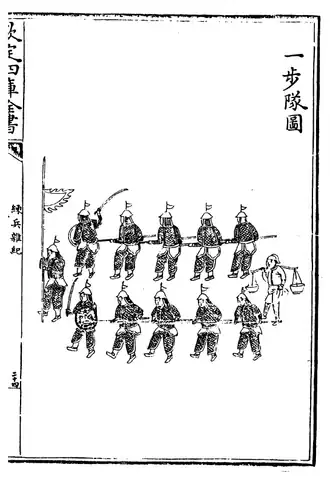 一步隊圖
欽定四庫全書
練兵雜紀